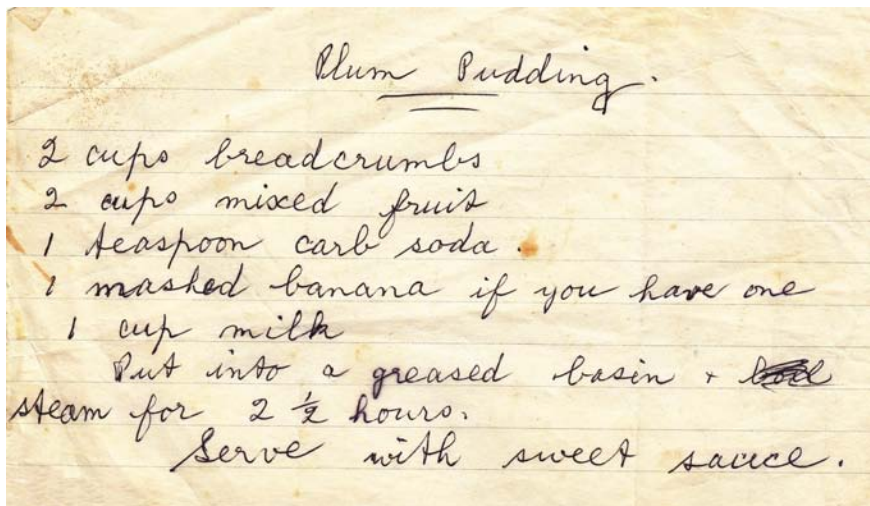 Plum Pudding.
2 cups breadcrumbs
2 cups mixed fruit
1 teaspoon carb soda.
1 mashed banana if you have one
1 cup milk
Put into a greased basin +
steam for 2 ½ hours.
Serve with sweet sauce.